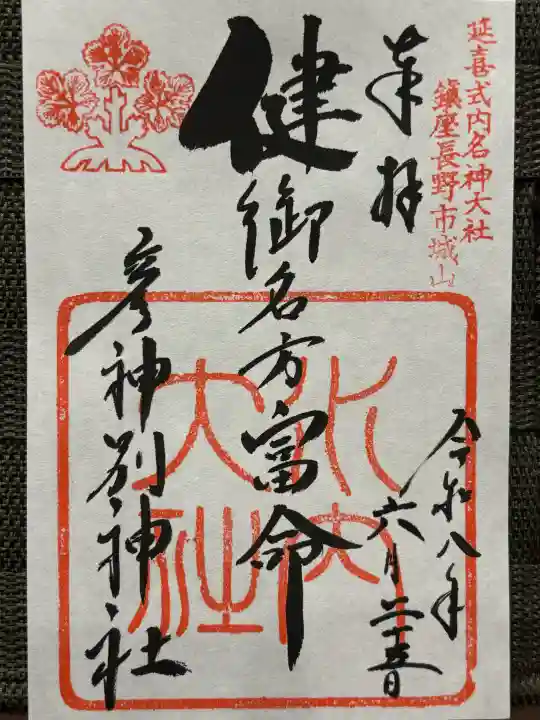 延喜式内名神大社
鎮座長野市城山
奉拝
健御名方富命
彦神別神社
令和八年
六月二十五日
水内
大社